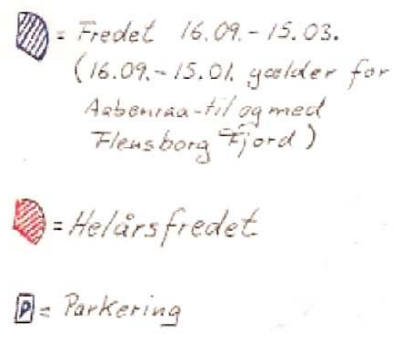 = Fredet 16.09.-15.03.
(16.09.-15.01. gælder for
Aabenraa-til og med
Flensborg Fjord)
= Helårsfredet
P = Parkering